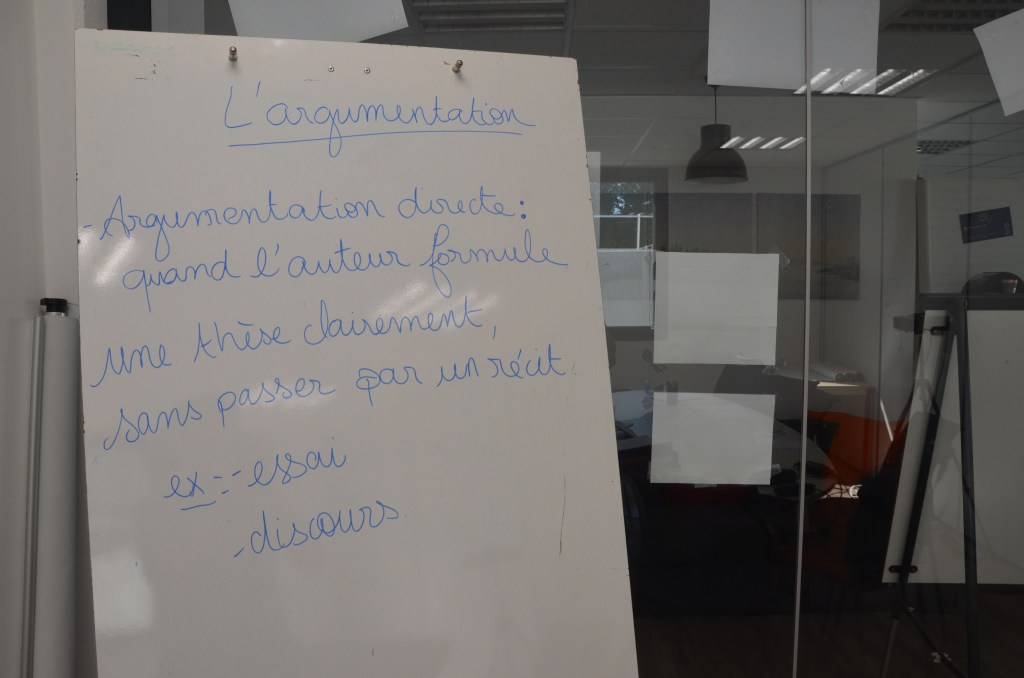 L'argumentation
- Argumentation directe :
quand l'auteur formule
une thèse clairement,
sans passer par un récit.
ex : - essai
- discours